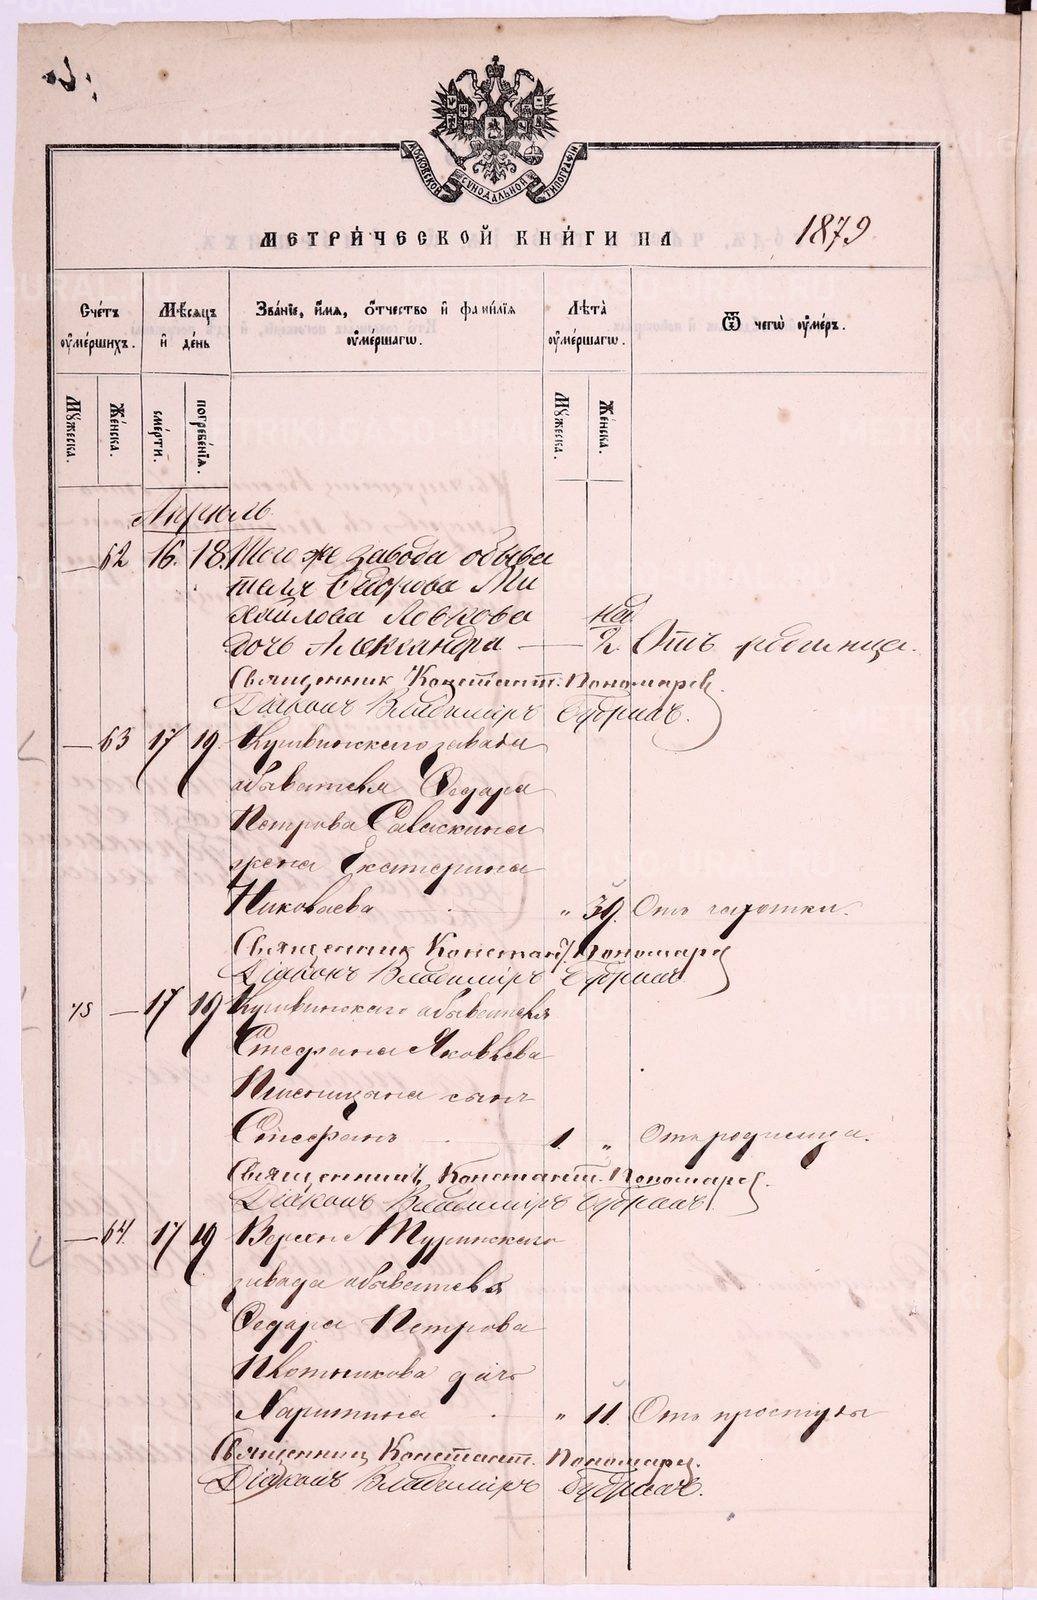 МОСКОВСКОЙ СѴНОДАЛЬНОЙ ТИПОГРАФІИ
МЕТРИ́ЧЕСКОЙ КНИ́ГИ НА 1879
Сче́тъ ᲂу҆ме́ршихъ.
Мѣ́сѧцъ и҆ де́нь
Зва́нїе, и҆́мѧ, ѻ҆́тчество и҆ фами́лїѧ ᲂу҆ме́ршагѡ.
Лѣ́та ᲂу҆ме́ршагѡ.
Ѿ чегѡ̀ ᲂу҆́меръ.
Мꙋ́жеска.
Же́нска.
сме́рти.
погребе́нїѧ.
Мꙋ́жеска.
Же́нска.
Апрѣль
62 16. 18. Того же завода обыва
теля Ѳедорова Ми
хайлова Левкова нед.
дочь Александра — 2. Отъ родимца.
Священник Констант. Пономарев.
Діаконъ Владиміръ
— 63 17 19. Кушвинскаго завода
обывателя Ѳедора
Петрова Саваскина
жена Екатерина
Николаева " 39. Отъ горячки.
Священник Констант. Пономарев
Діаконъ Владиміръ
75 — 17 19 Кушвинскаго обывателя
Стефана Яковлева
Пшеницына сынъ
Стефанъ 1. " Отъ родимца.
Священникъ Констант. Пономарев.
Діаконъ Владиміръ
— 64. 17 19 Верхне Туринскаго
завода обывателя
Ѳедора Петрова
Плотникова дочь
Харитина " 11. Отъ простуды
Священник Констант. Пономарев.
Діаконъ Владиміръ